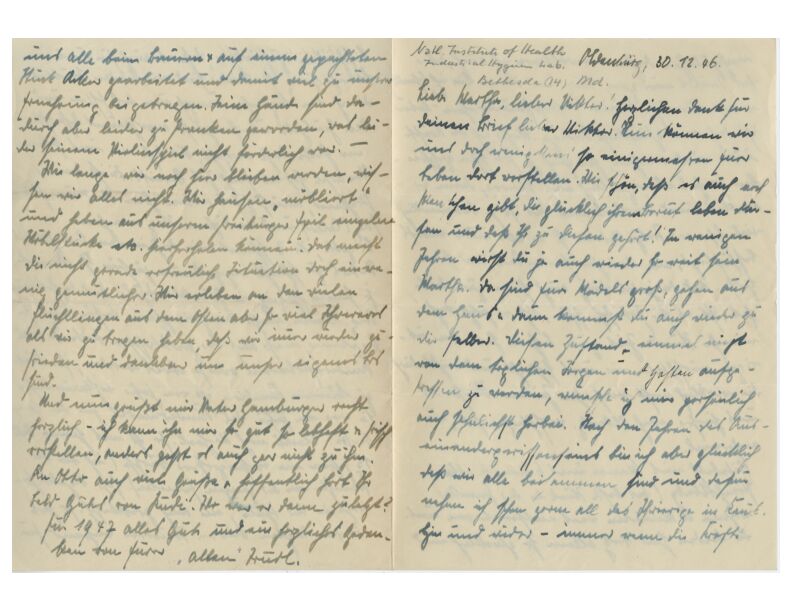 und alle beim Bauern & auf einem gepachteten
Stück Acker gearbeitet und damit viel zu unserer
Ernährung beigetragen. Seine Hände sind da-
durch aber leider zu Pranken geworden, was lei-
der seinem Violinspiel nicht förderlich war. —
Wie lange wir noch hier bleiben werden, wis-
sen wir alles nicht. Wir hausen „möbliert“
und haben aus unserem Freiburger Teil einzelne
Möbelstücke etc. hierherholen können. Das macht
die nicht gerade erfreuliche Situation doch ein we-
nig gemütlicher. Wir erleben an den vielen
Flüchtlingen aus dem Osten aber so viel Schwereres
als wir zu tragen haben, daß wir immer wieder zu-
frieden und dankbar um unser eigenes Los
sind.
Und nun grüßt mir Vater Hamburger recht
herzlich – ich kann ihn mir so gut so lebhaft & frisch
vorstellen, anders geht es auch gar nicht zu ihm.
An Otto auch viele Grüße & hoffentlich hört Ihr
bald Gutes von Rude. Wo war er denn zuletzt?
Für 1947 alles Gute und ein herzliches Geden-
ken von Eurer „alten“ Trudl.
Natl. Institute of Health
Industrial Hygiene Lab.
Bethesda (14) Md.
Oldenburg, 30.12.46.
Liebe Martha, lieber Viktor! Herzlichen Dank für
deinen Brief lieber Viktor. Nun können wir
uns doch wenigstens so einigermaßen Euer
Leben dort vorstellen. Wie schön, daß es auch noch
Menschen gibt, die glücklich ihrem Beruf leben dür-
fen und daß Ihr zu diesen gehört! In wenigen
Jahren wirst du ja auch wieder so weit sein
Martha. Da sind Eure Mädels groß, gehen aus
dem Haus & dann kommst du auch wieder zu
dir selber. Diesen Zustand, einmal nicht
von den täglichen Sorgen und Hasten aufge-
fressen zu werden, wünsche ich mir persönlich
auch sehnlichst herbei. Nach den Jahren des Aus-
einandergerissenseins bin ich aber glücklich
daß wir alle beisammen sind und dafür
nehmen ich schon gerne all das Schwierige in Kauf.
Hin und wieder – immer wenn die Kräfte